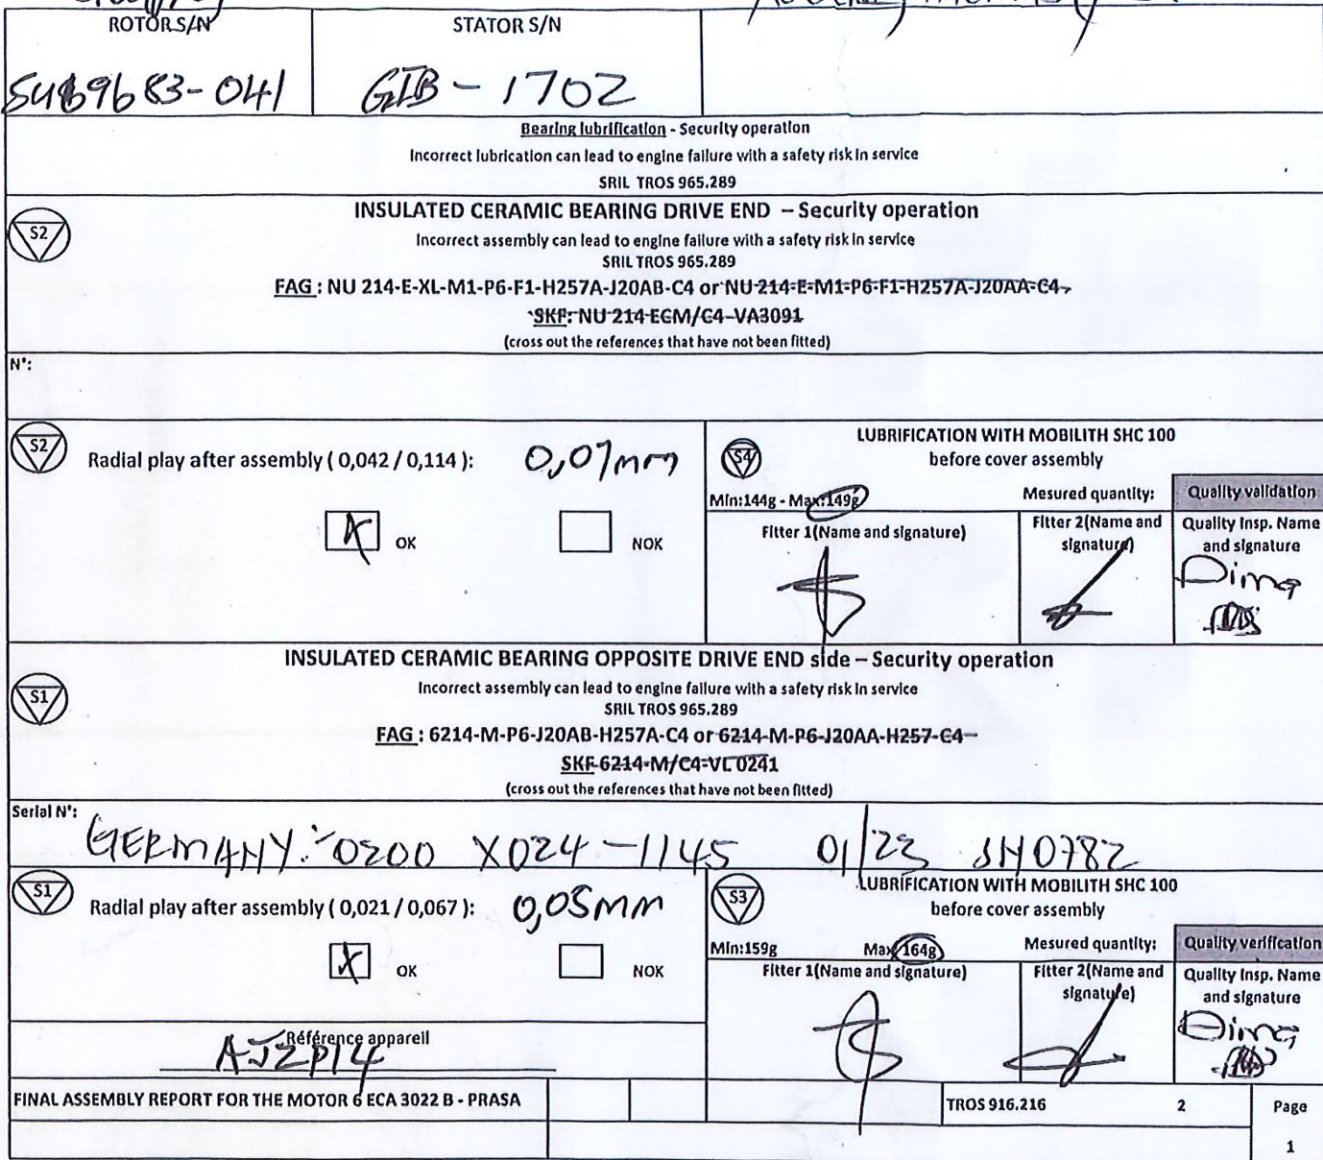 ROTOR S/N
STATOR S/N
GIB - 1702
Bearing lubrification - Security operation
Incorrect lubrication can lead to engine failure with a safety risk in service
SRIL TROS 965.289
S2
INSULATED CERAMIC BEARING DRIVE END – Security operation
Incorrect assembly can lead to engine failure with a safety risk in service
SRIL TROS 965.289
FAG : NU 214-E-XL-M1-P6-F1-H257A-J20AB-C4 or NU 214-E-M1-P6-F1-H257A-J20AA-C4
SKF: NU 214 ECM/C4-VA3091
(cross out the references that have not been fitted)
N°:
S2
Radial play after assembly ( 0,042 / 0,114 ): 0,07mm
X OK
NOK
S4
LUBRIFICATION WITH MOBILITH SHC 100
before cover assembly
Min:144g - Max:149g
Mesured quantity:
Quality validation
Fitter 1(Name and signature)
Fitter 2(Name and signature)
Quality Insp. Name and signature
Dima
INSULATED CERAMIC BEARING OPPOSITE DRIVE END side – Security operation
S1
Incorrect assembly can lead to engine failure with a safety risk in service
SRIL TROS 965.289
FAG : 6214-M-P6-J20AB-H257A-C4 or 6214-M-P6-J20AA-H257-C4
SKF 6214-M/C4-VL0241
(cross out the references that have not been fitted)
Serial N°:
GERMANY: 0200 X024 - 1145 01/23 JN0782
S1
Radial play after assembly ( 0,021 / 0,067 ): 0,05mm
X OK
NOK
S3
LUBRIFICATION WITH MOBILITH SHC 100
before cover assembly
Min:159g Max 164g
Mesured quantity:
Quality verification
Fitter 1(Name and signature)
Fitter 2(Name and signature)
Quality Insp. Name and signature
Dima
Référence appareil
AJZP14
FINAL ASSEMBLY REPORT FOR THE MOTOR 6 ECA 3022 B - PRASA
TROS 916.216
2
Page
1